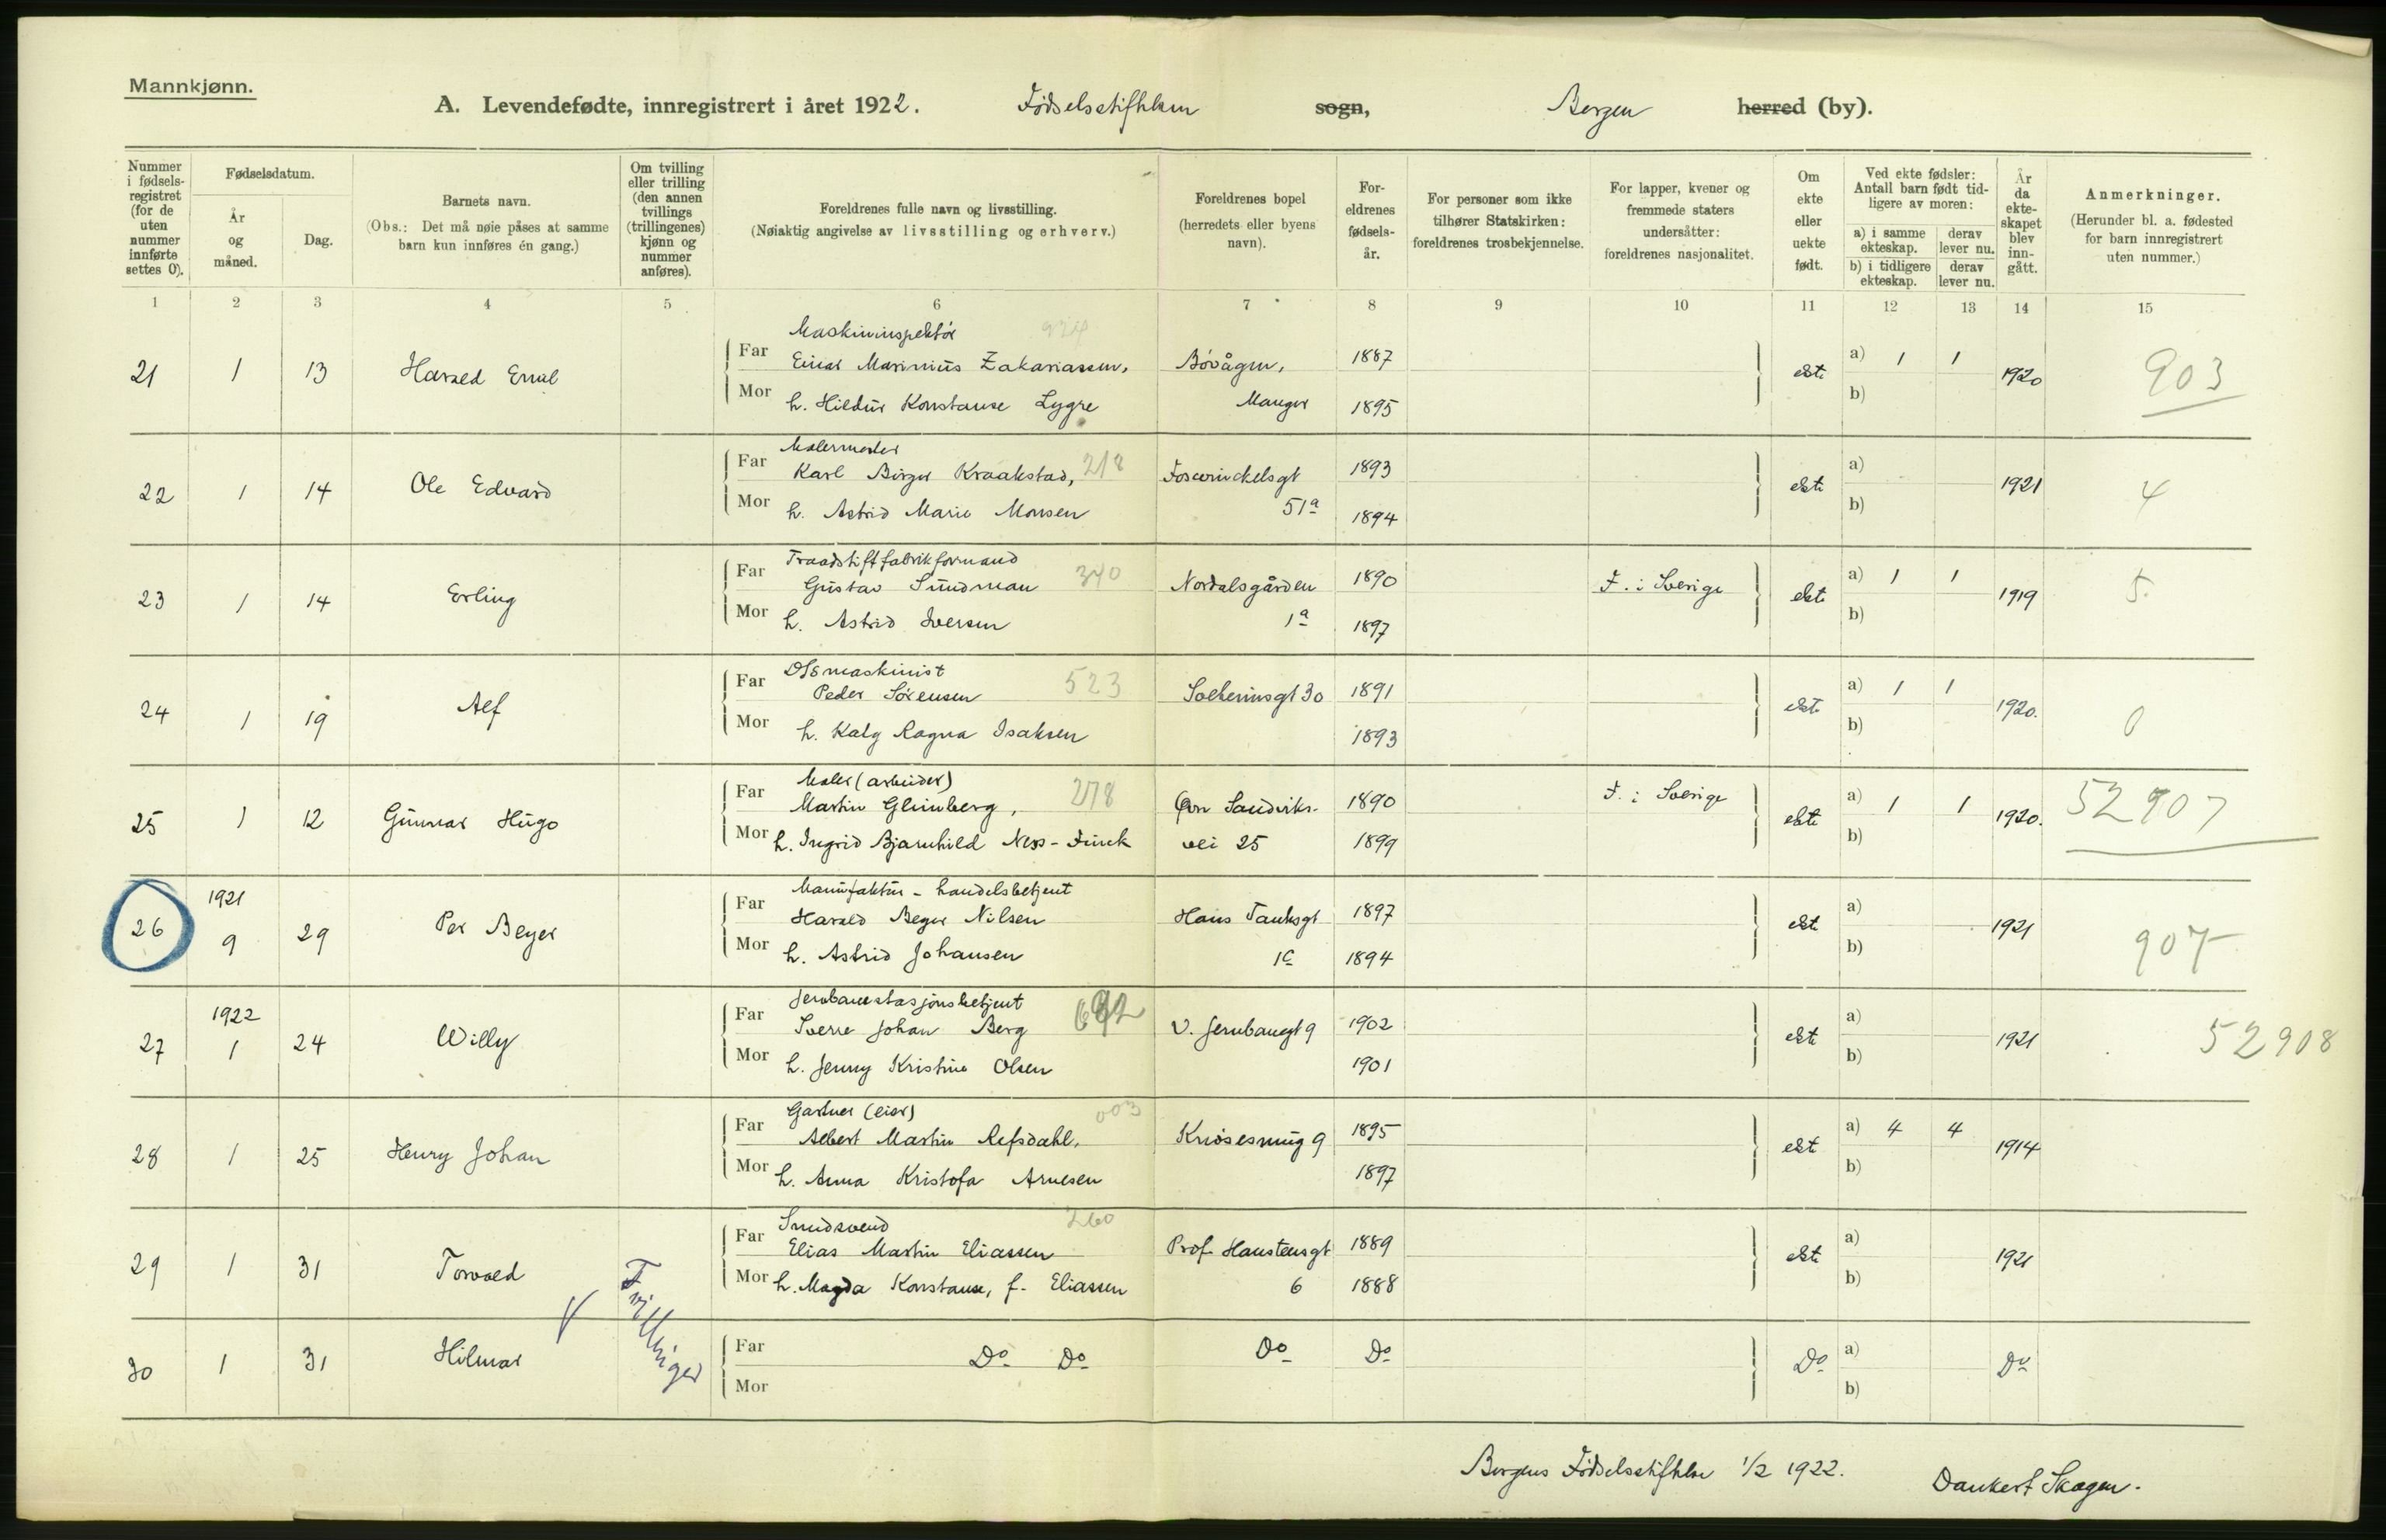 Mannkjønn.
A. Levendefødte, innregistrert i året 1922. Fødselsstiftelsen sogn, Bergen herred (by).
Nummer i fødsels-registret (for de uten nummer innførte settes 0).
Fødselsdatum.
År og måned.
Dag.
Barnets navn.
(Obs.: Det må nøie påses at samme barn kun innføres én gang.)
Om tvilling eller trilling (den annen tvillings (trillingenes) kjønn og nummer anføres).
Foreldrenes fulle navn og livsstilling.
(Nøiaktig angivelse av livsstilling og erhverv.)
Foreldrenes bopel
(herredets eller byens navn).
For-eldrenes fødsels-år.
For personer som ikke tilhører Statskirken: foreldrenes trosbekjennelse.
For lapper, kvener og fremmede staters undersåtter: foreldrenes nasjonalitet.
Om ekte eller uekte født.
Ved ekte fødsler: Antall barn født tid-ligere av moren:
a) i samme ekteskap.
derav lever nu.
b) i tidligere ekteskap.
derav lever nu.
År da ekte-skapet blev inn-gått.
Anmerkninger.
(Herunder bl. a. fødested for barn innregistrert uten nummer.)
1 2 3 4 5 6 7 8 9 10 11 12 13 14 15
Maskininspektør
21 1 13 Harald Emil Far Einar Marinius Zakariassen, Bøvågen, 1887 ekte a) 1 1 1920 903
Mor h. Hildur Konstanse Lygre Manger 1895 b)
Malermester
22 1 14 Ole Edvard Far Karl Birger Kraakstad, 218 1893 ekte a) 1921 4
Mor h. Astrid Marie Monsen 51a 1894 b)
Traadstiftfabrikformand
23 1 14 Erling Far Gustav Sundman 340 Nordalsgården 1890 F. i Sverige ekte a) 1 1 1919 5.
Mor h. Astrid Iversen 1a 1897 b)
maskinist
24 1 19 Alf Far Peder Sörensen 523 30 1891 ekte a) 1 1 1920. 0
Mor h. Ragna Isaksen 1893 b)
Maler (arbeider)
25 1 12 Gunnar Hugo Far Martin Glimberg, 278 Øvr Sandviks- 1890 F. i Sverige ekte a) 1 1 1920. 52907
Mor h. Ingrid Bjarnhild Ness-Finck vei 25 1899 b)
Manufaktur-handelsbetjent
26 1921 9 29 Per Beyer Far Harald Beyer Nilsen Hans Tanksgt 1897 ekte a) 1921 907
Mor h. Astrid Johansen 1c 1894 b)
Jernbanestasjonsbetjent
27 1922 1 24 Willy Far Sverre Johan Berg V. Jernbanegt 9 1902 ekte a) 1921 52908
Mor h. Jenny Kristine Olsen 1901 b)
Gartner (eier) 003
28 1 25 Henry Johan Far Albert Martin Refsdahl, 9 1895 ekte a) 4 4 1914
Mor h. Anna Kristofa Arnesen 1897 b)
Smedsvend 260
29 1 31 Torvald Tvillinger Far Elias Martin Eliassen Prof. Hansteensgt 1889 ekte a) 1921
Mor h. Magda Konstanse, f. Eliassen 6 1888 b)
30 1 31 Hilmar Far Do Do Do Do Do a) Do
Mor b)
Bergens Fødselsstiftelse 1/2 1922.
Dankert Skagen.